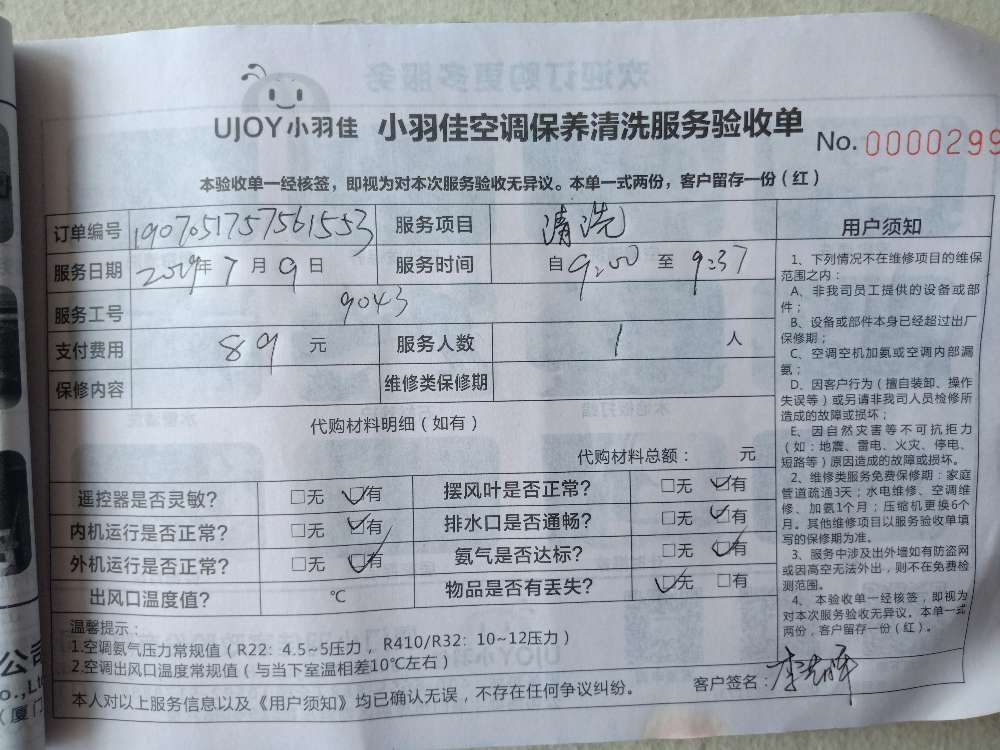 UJOY小羽佳 小羽佳空调保养清洗服务验收单 No.0000299
本验收单一经核签，即视为对本次服务验收无异议。本单一式两份，客户留存一份（红）
订单编号 1907051757561553 服务项目 清洗
服务日期 2019年7月9日 服务时间 自9:00至9:37
服务工号 9043
支付费用 89 元 服务人数 1 人
保修内容 维修类保修期
代购材料明细（如有）
代购材料总额： 元
遥控器是否灵敏？ □无 ☑有 摆风叶是否正常？ □无 ☑有
内机运行是否正常？ □无 ☑有 排水口是否通畅？ □无 ☑有
外机运行是否正常？ □无 ☑有 氨气是否达标？ □无 ☑有
出风口温度值？ ℃ 物品是否有丢失？ ☑无 □有
温馨提示：
1.空调氨气压力常规值（R22：4.5~5压力，R410/R32：10~12压力）
2.空调出风口温度常规值（与当下室温相差10℃左右）
本人对以上服务信息以及《用户须知》均已确认无误，不存在任何争议纠纷。 客户签名：
用户须知
1、下列情况不在维修项目的维保
范围之内：
A、非我司员工提供的设备或部
件；
B、设备或部件本身已经超过出厂
保修期；
C、空调空机加氨或空调内部漏
氨；
D、因客户行为（擅自装卸、操作
失误等）或另请非我司人员检修所
造成的故障或损坏；
E、因自然灾害等不可抗拒力
（如：地震、雷电、火灾、停电、
短路等）原因造成的故障或损坏。
2、维修类服务免费保修期：家庭
管道疏通3天；水电维修、空调维
修、加氨1个月；压缩机更换6个
月。其他维修项目以服务验收单填
写的保修期为准。
3、服务中涉及出外墙如有防盗网
或因高空无法外出，则不在免费检
测范围。
4、本验收单一经核签，即视为
对本次服务验收无异议。本单一式
两份，客户留存一份（红）。
公司
o.,Lt
（厦门